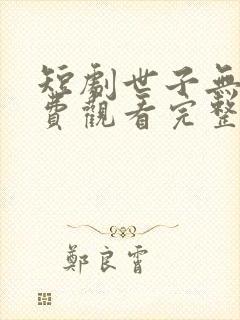 短劇世子無
費觀看完整
鄭良霄